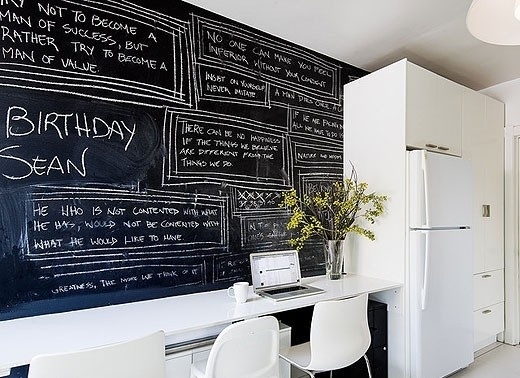 RY NOT TO BECOME A
MAN OF SUCCESS, BUT
RATHER TRY TO BECOME A
MAN OF VALUE.
NO ONE CAN MAKE YOU FEEL
INFERIOR WITHOUT YOUR CONSENT
INSIST ON YOURSELF
NEVER IMITATE
A MAN DIES ONCE A
BIRTHDAY
SEAN
THERE CAN BE NO HAPPINESS
IF THE THINGS WE BELIEVE
ARE DIFFERENT FROM THE
THINGS WE DO.
IF WE ARE FACING
ALL WE HAVE TO DO
NATURE AND
HE WHO IS NOT CONTENTED WITH WHAT
HE HAS, WOULD NOT BE CONTENTED WITH
WHAT HE WOULD LIKE TO HAVE.
IN THE
GREATNESS, THE MORE WE THINK OF IT